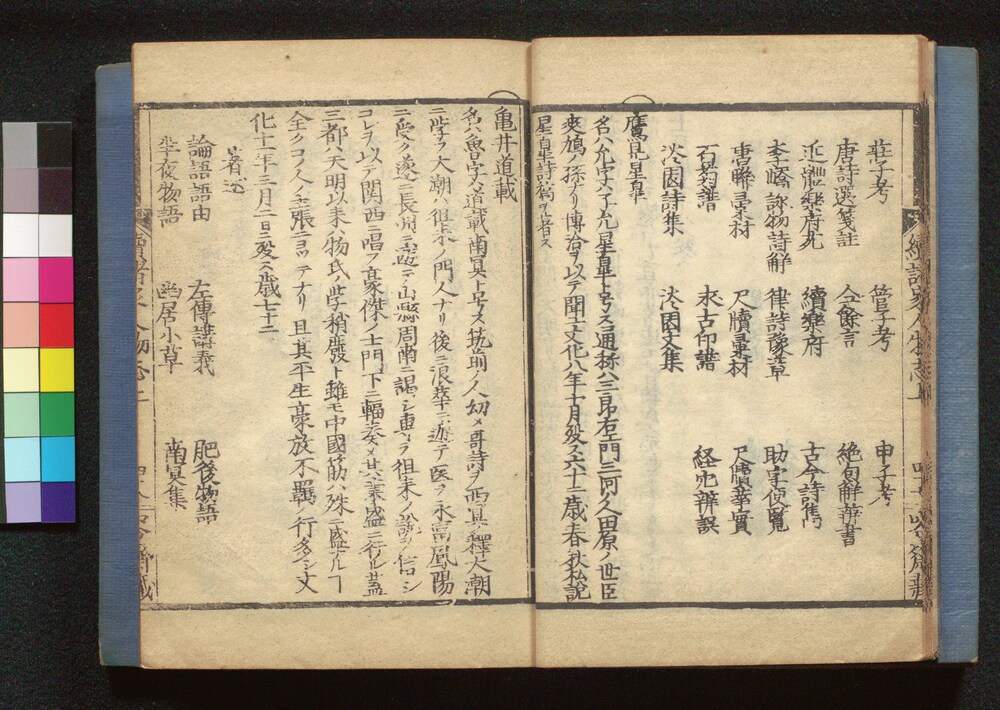 莊子考 管子考 申子考
唐詩選箋註 金餘言 絶句解辨書
近體樂府 續樂府 古今詩雋
李嶠詠物詩解 律詩 助字便覧
唐聯 材 尺牘 材 尺牘 實
石譜 來古印譜 辨誤
淡園詩集 淡園文集
鷹見星皐
名ハ 字ハ子允星皐ト号ス通称ハ三郎右エ門三河ノ人田原ノ世臣
爽鳩ノ孫ナリ博洽ヲ以テ聞ユ文化八年十月殁ス六十二歳春秋私説
星皐詩稿ヲ著ス
亀井道載
名ハ魯字ハ道載南冥ト号ス筑前ノ人幼メ哥詩ヲ西溟ノ釋大潮
ニ学フ大潮ハ徂徠ノ門人ナリ後ニ浪華ニ遊テ医ヲ永富鳳陽
ニ受ク遂ニ長州ニ遊テ山縣周南ニ謁シ専ラ徂来ノ説ヲ信シ
コレヲ以テ関西ニ唱フ豪傑ノ士門下ニ輻湊メ其業盛ニ行ル蓋
三都ハ天明以来ハ物氏ノ学稍廢ト雖モ中國筋ハ殊ニ盛ナルヿ
全クコノ人ノ主張ニヨツテナリ且其平生豪放不羈ノ行多シ文
化十一年三月二日ニ殁ス歳七十二
著述
論語語由 左傳講義 肥後物語
半夜物語 幽居小草 南冥集